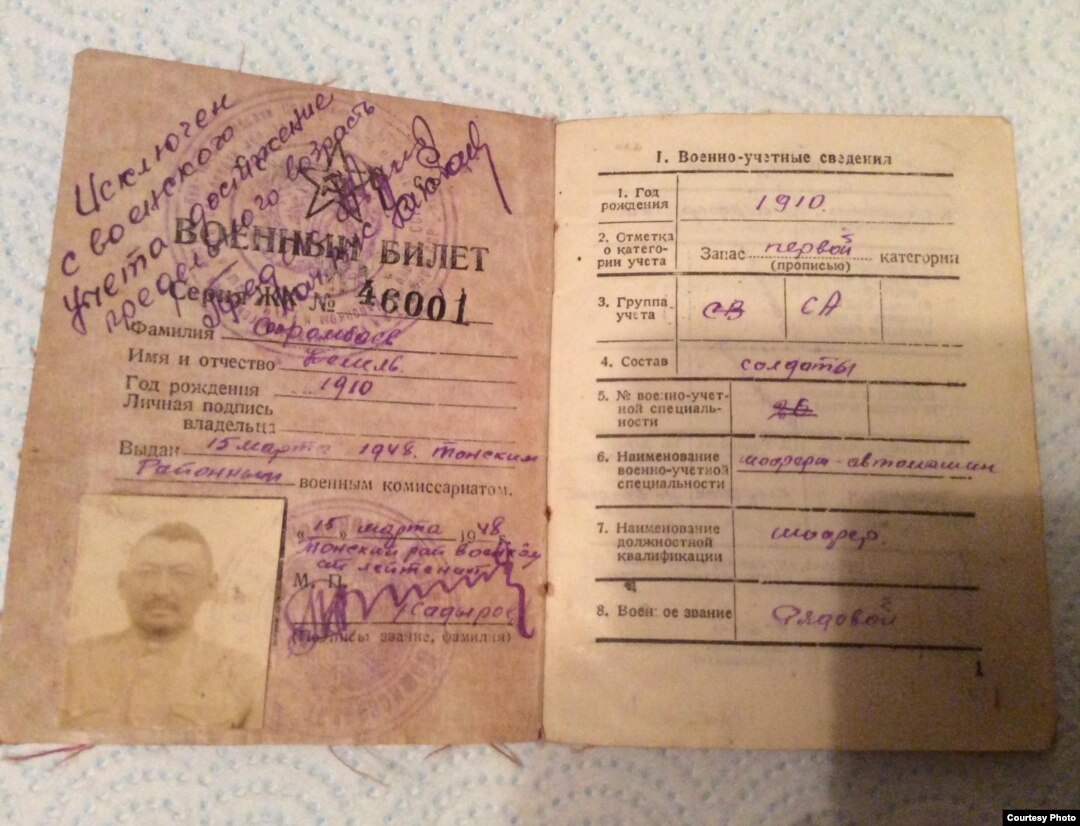 Исключен
с военского
учета достижение
предельного возрасть
ВОЕННЫЙ БИЛЕТ
Серия ЖК № 46001
Фамилия
Имя и отчество
Год рождения 1910
Личная подпись
владельца
Выдан 15 марта 1948. Тонским
Районным военным комиссариатом.
„15" марта 1948 г.
Тонский рай военком
лейтенант
М. П.
Садыров
(Подпись, звание, фамилия)
I. Военно-учетные сведения
1. Год
рождения
1910.
2. Отметка
о катего-
рии учета
Запас первой категории
(прописью)
3. Группа
учета
СВ
СА
4. Состав
солдаты
5. № военно-учет-
ной специаль-
ности
26
6. Наименование
военно-учетной
специальности
шоферы-автомашин
7. Наименование
должностной
квалификации
шофер.
8. Военное звание
Рядовой
1
Courtesy Photo